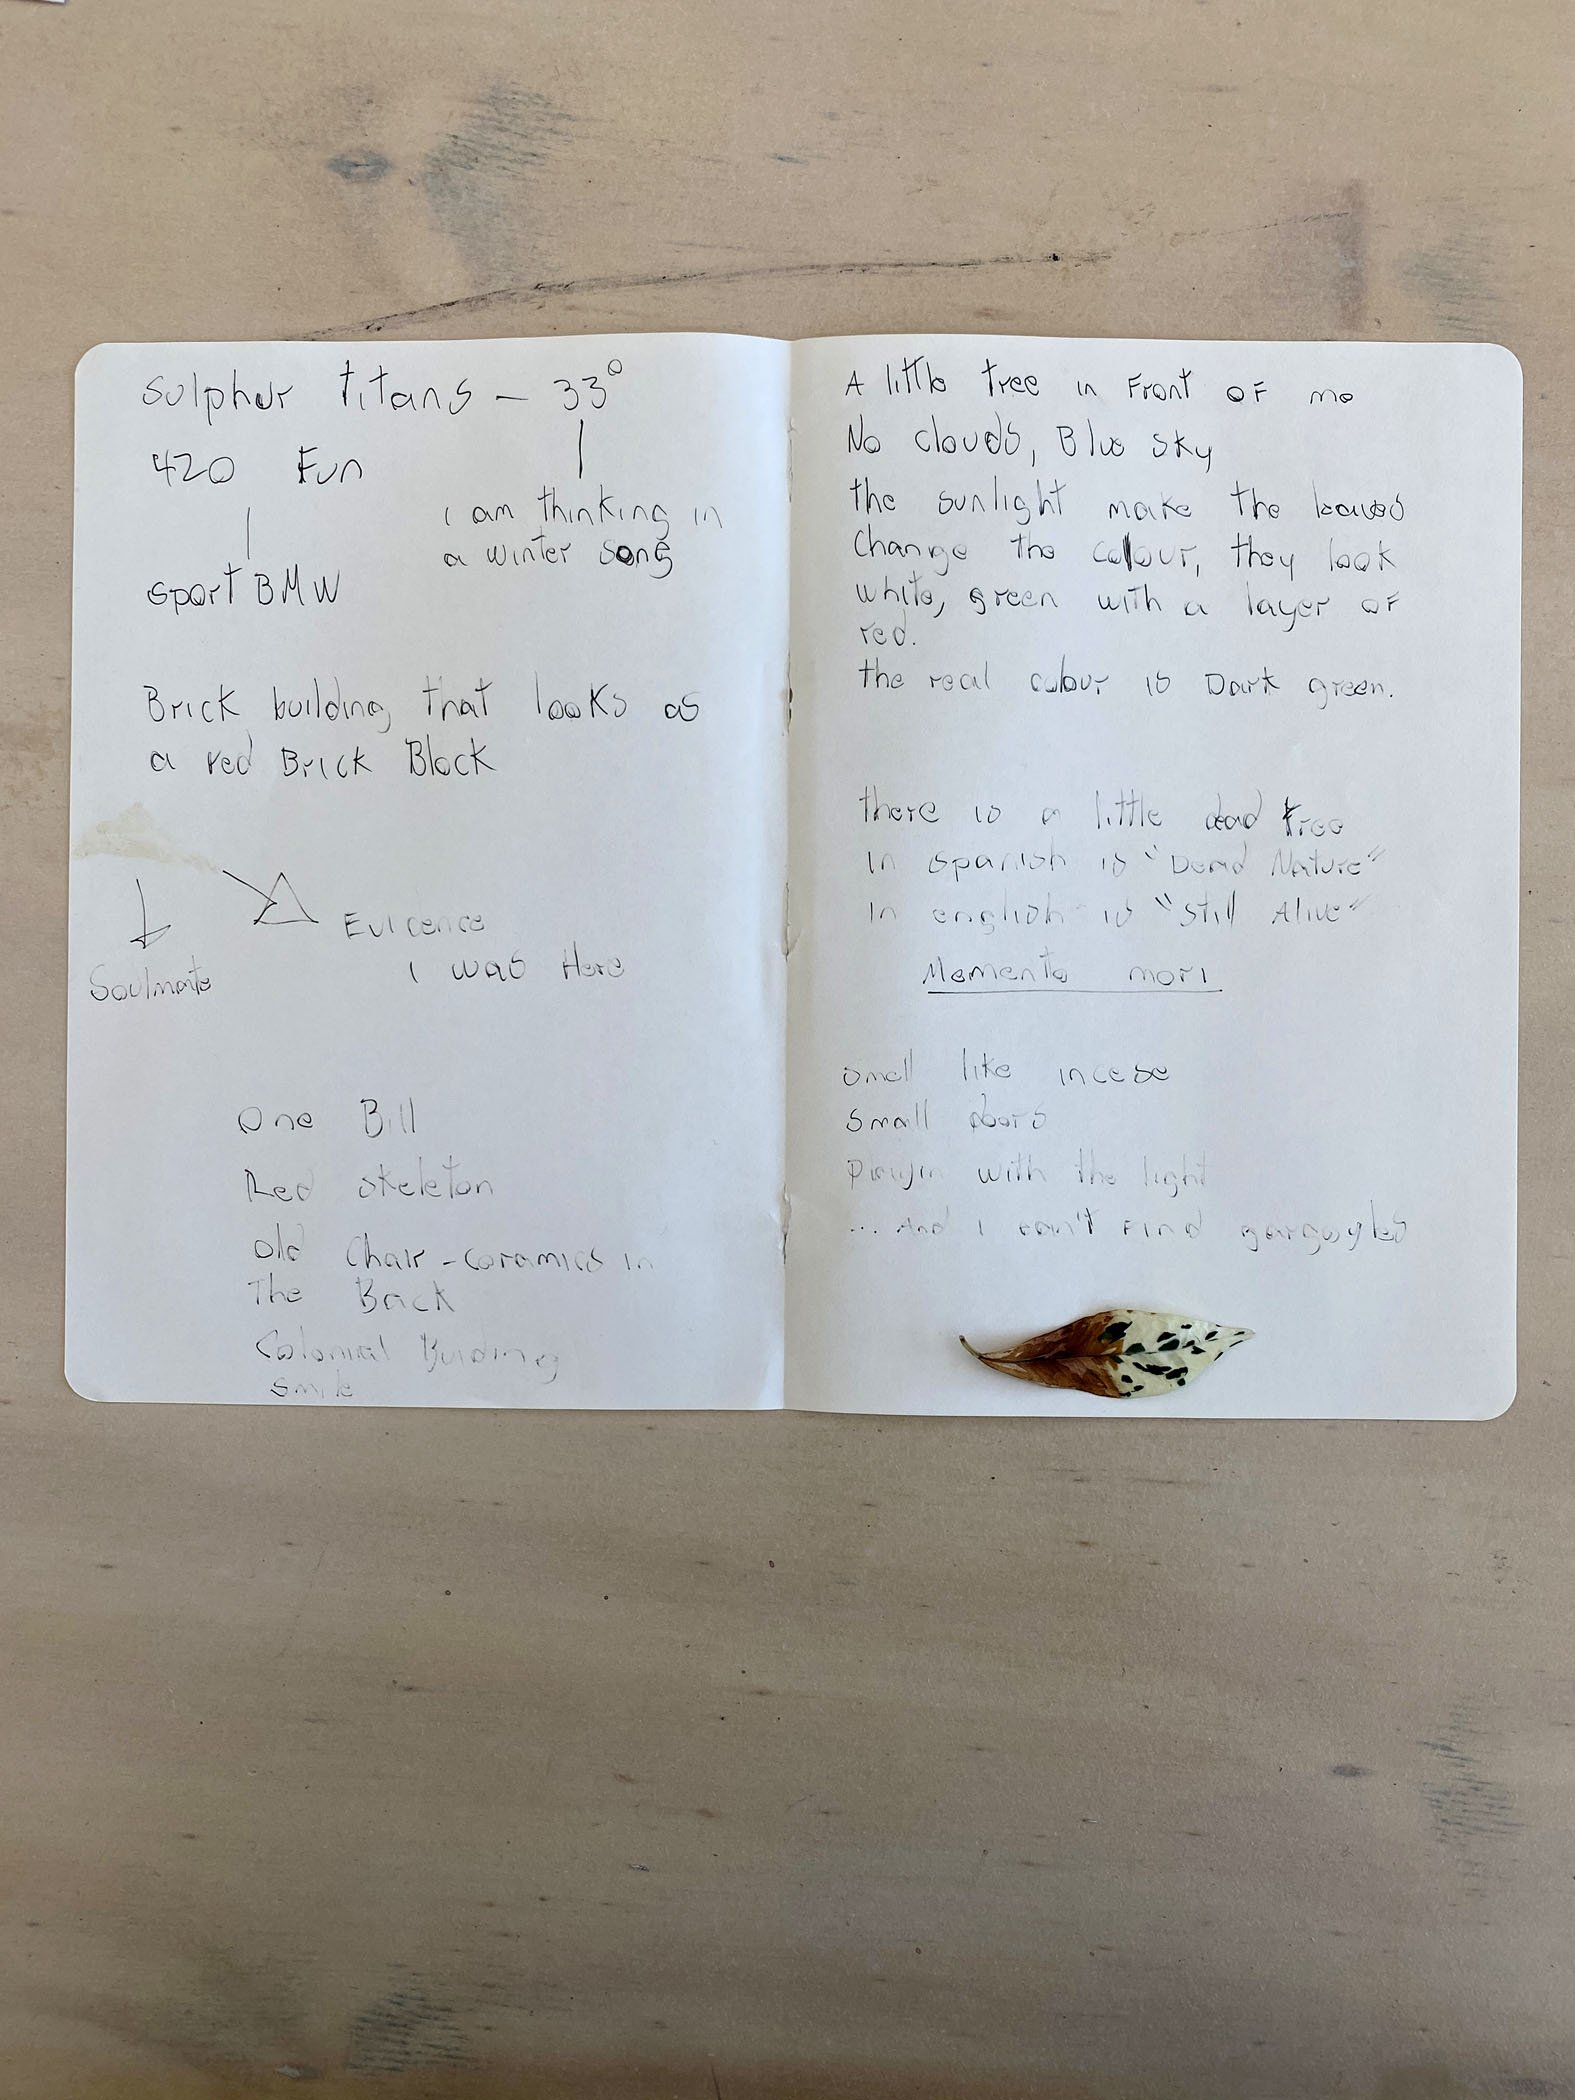 Sulphur titans – 33°
420 Fun
I am thinking in
a winter song
Sport BMW
Brick building that looks as
a red Brick Block
Soulmate
Evidence
I was Here
One Bill
Red skeleton
Old Chair - ceramics in
The Back
Colonial Buiding
Smile
A little tree in Front OF me
No clouds, Blue sky
the sunlight make the leaves
Change the colour, they look
white, green with a layer OF
red.
the real colour is Dark green.
there is a little dead tree
In spanish is "Dead Nature"
In english is "Still Alive"
Memento mori
Smell like incese
Small doors
Playin with the light
... And I can't Find gargoyles